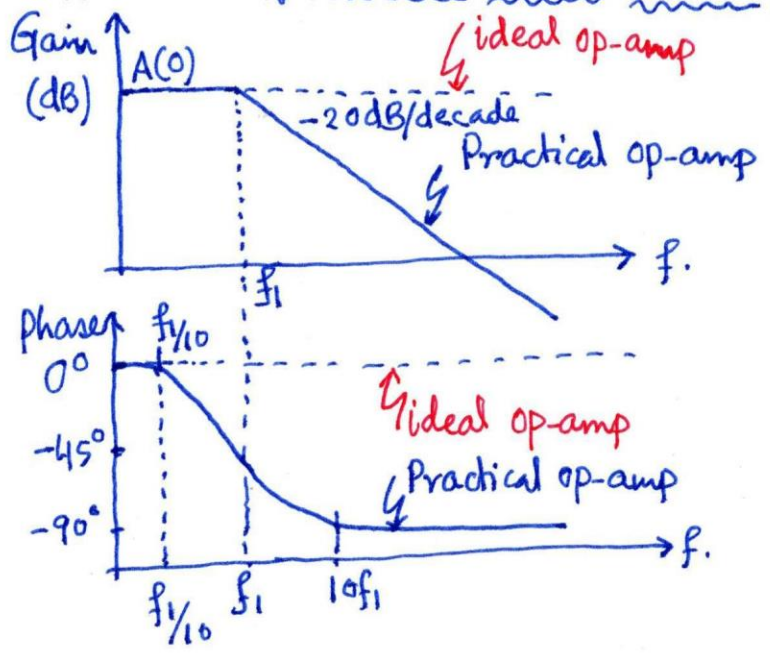 Gain
(dB)
A(0)
ideal op-amp
-20dB/decade
Practical op-amp
f.
f1
Phase
f1/10
0°
ideal op-amp
-45°
Practical op-amp
-90°
f.
f1/10
f1
10f1